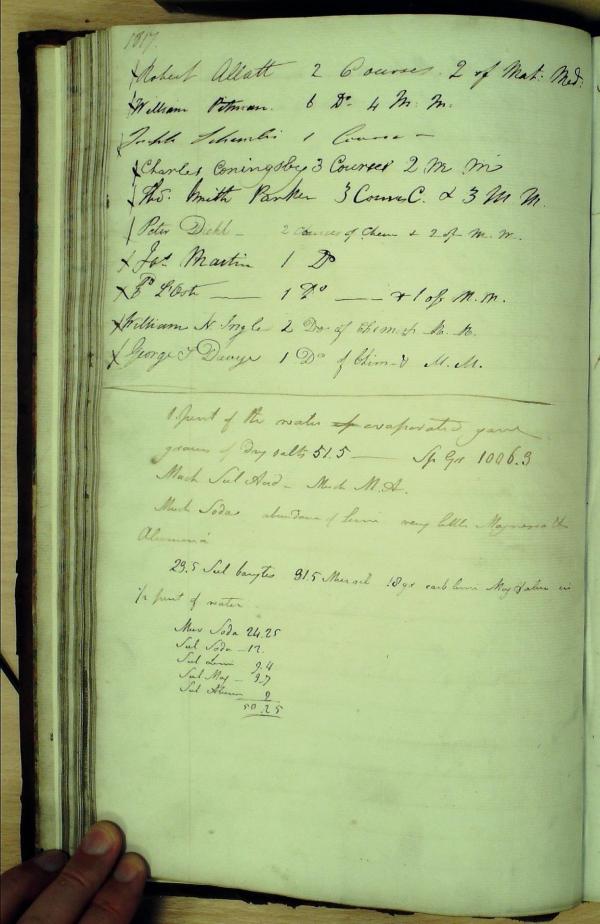 1817.
Robert Allatt 2 Courses. 2 of Mat: Med:
William Pitman. 6 Do. 4 M. M.
1 Course —
Charles Coningsby 3 Courses 2 M M
Tho: Smith Parker 3 Cours C. & 3 M M.
Peter Dehl — 2 Courses of Chem & 2 of M. M.
Jas Martin 1 Do
1 Do — & 1 of M. M.
William N. Ingle 2 Do of Chim & M. M.
George T 1 Do of Chim & M. M.
1 pint of the water evaporated gave
grains of dry salts 51.5 — Sp Gr 1006.3
Much Sul Acid — Much M. A.
Much Soda abundance of lime very little Magnesia &
Alumina
29.5 Sul barytes 31.5 Mur 18 gr carb lime Mag & alum in
1/2 pint of water
Mur Soda 24.25
Sul Soda — 12.
Sul Lime 9.4
Sul Mag — 3.7
Sul Alum
50.25